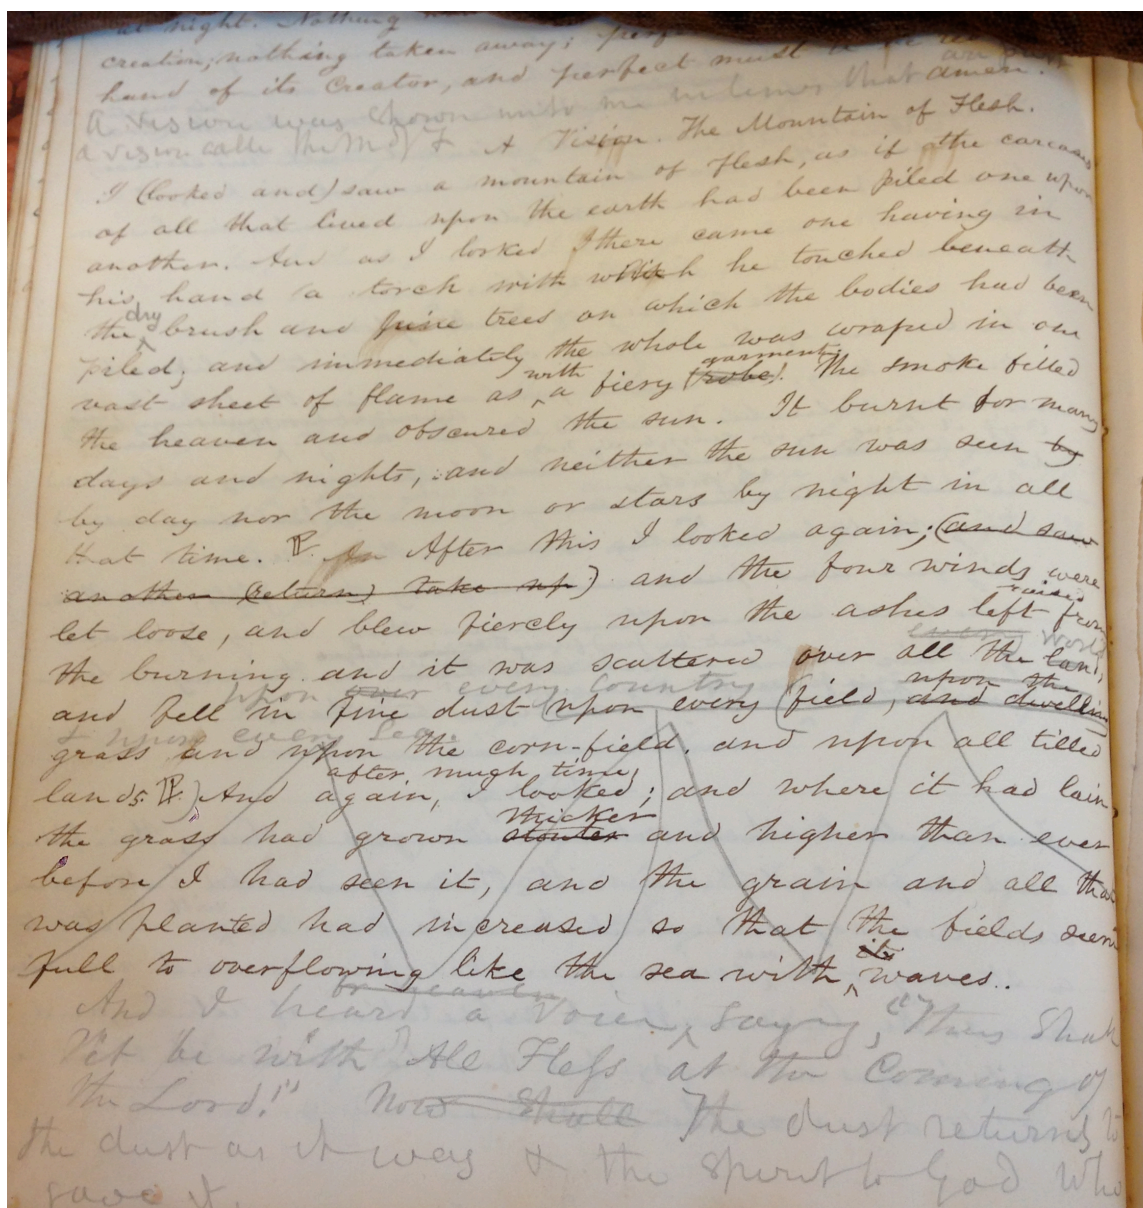 at night. Nothing
creation; nothing taken away; perfect must
hand of its Creator, and perfect must
amen.
A vision was shown unto me
a vision A Vision. The Mountain of Flesh.
I (looked and) saw a mountain of flesh, as if the carcases
of all that lived upon the earth had been piled one upon
another. And as I looked there came one having in
his hand a torch with which he touched beneath
dry
the brush and pine trees on which the bodies had been
piled; and immediately the whole was wraped in one
with garment
vast sheet of flame as a fiery (robe). The smoke filled
the heaven and obscured the sun. It burnt for many
days and nights, and neither the sun was seen by
by day nor the moon or stars by night in all
that time. After this I looked again; (and saw
another (return) take up) and the four winds were
raised
let loose, and blew fiercly upon the ashes left from
every world
the burning and it was scattered over all the land,
upon over every country upon the
and fell in fine dust upon every (field, and dwelling
& upon every sea.
grass and upon the corn-field, and upon all tilled
after much time,
lands. And again, I looked; and where it had lain,
thicker
the grass had grown stouter and higher than ever
before I had seen it, and the grain and all that
was planted had increased so that the fields seem
its
full to overflowing like the sea with waves..
from heaven
And I heard a Voice, saying, "Thus Shall
it be with All Flesh at the Coming of
the Lord!" Now Shall The dust returns to
the dust as it was & the Spirit to God who
gave it.